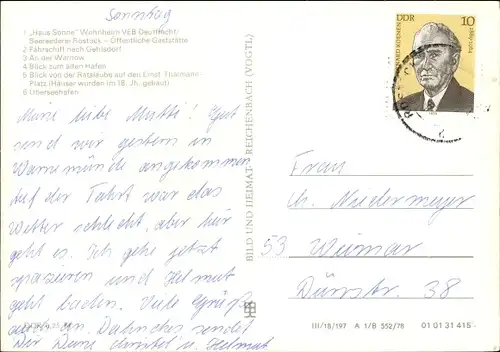 Sonntag
1 „Haus Sonne“ Wohnheim VEB Deutfracht/
Seereederei Rostock – Öffentliche Gaststätte
2 Fährschiff nach Gehlsdorf
3 An der Warnow
4 Blick zum alten Hafen
5 Blick von der Ratslaube auf den Ernst-Thälmann-
Platz (Häuser wurden im 18. Jh. gebaut)
6 Überseehafen
Meine liebe Mutti! Gut
sind wir gestern in
Warnemünde angekommen
Auf der Fahrt war das
Wetter schlecht, aber hier
geht es. Ich gehe jetzt
spazieren und Helmut
geht baden. Viele Grüße
auch an Dahnchs sendet
Dir Deine Christel u. Helmut
BILD UND HEIMAT REICHENBACH (VOGTL)
DDR 10
Frau
Ch. Niedermeyer
53 Weimar
Dürrstr. 38
III/18/197 A 1/B 552/78 01 01 31 415